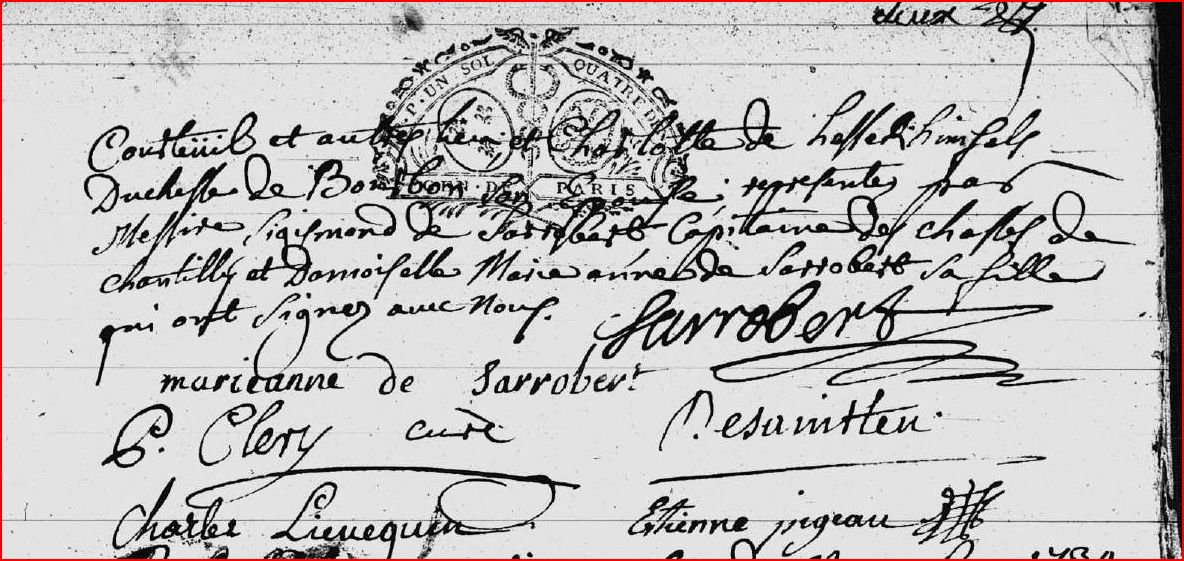 deux
P. UN. SOL QUATRE DEN
GEN. DE PARIS
Courteüil et autres lieu et Charlotte de hesse Rhinfels
Duchesse de Bourbon Son Epouse, representes par
Messire Sigismond de Sarrobert Capitaine des chasses de
chantilly et Damoiselle Marie anne de Sarrobert Sa fille
qui ont Signez avec Nous.
Sarrobert
marieanne de Sarrobert
P. Clery curé
Desaintleu
Charle Lievequin
Etienne pigeau